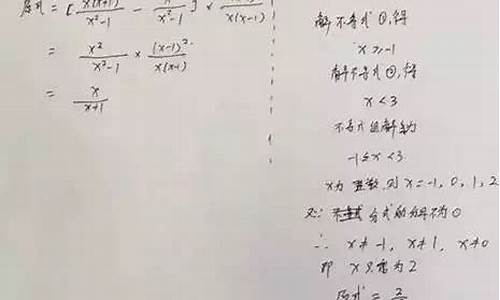 原式 = [ x(x+1)/x²-1 - x/x²-1 ] ×
= x²/x²-1 × (x-1)²/x(x-1)
= x/x+1
解不等式①,得
x ≥ -1
解不等式②,得
x < 3
不等式组解为
-1 ≤ x < 3
x为整数,则 x = -1, 0, 1, 2
又∵ 分式的分母不为0
∴ x ≠ -1, x ≠ 1, x ≠ 0
即 x 只为 2
原式 = 2